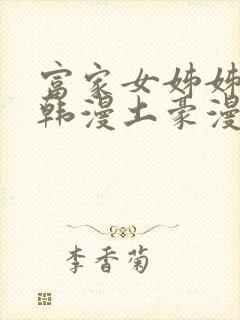 富家女姊姊
韩漫土豪漫
李香菊